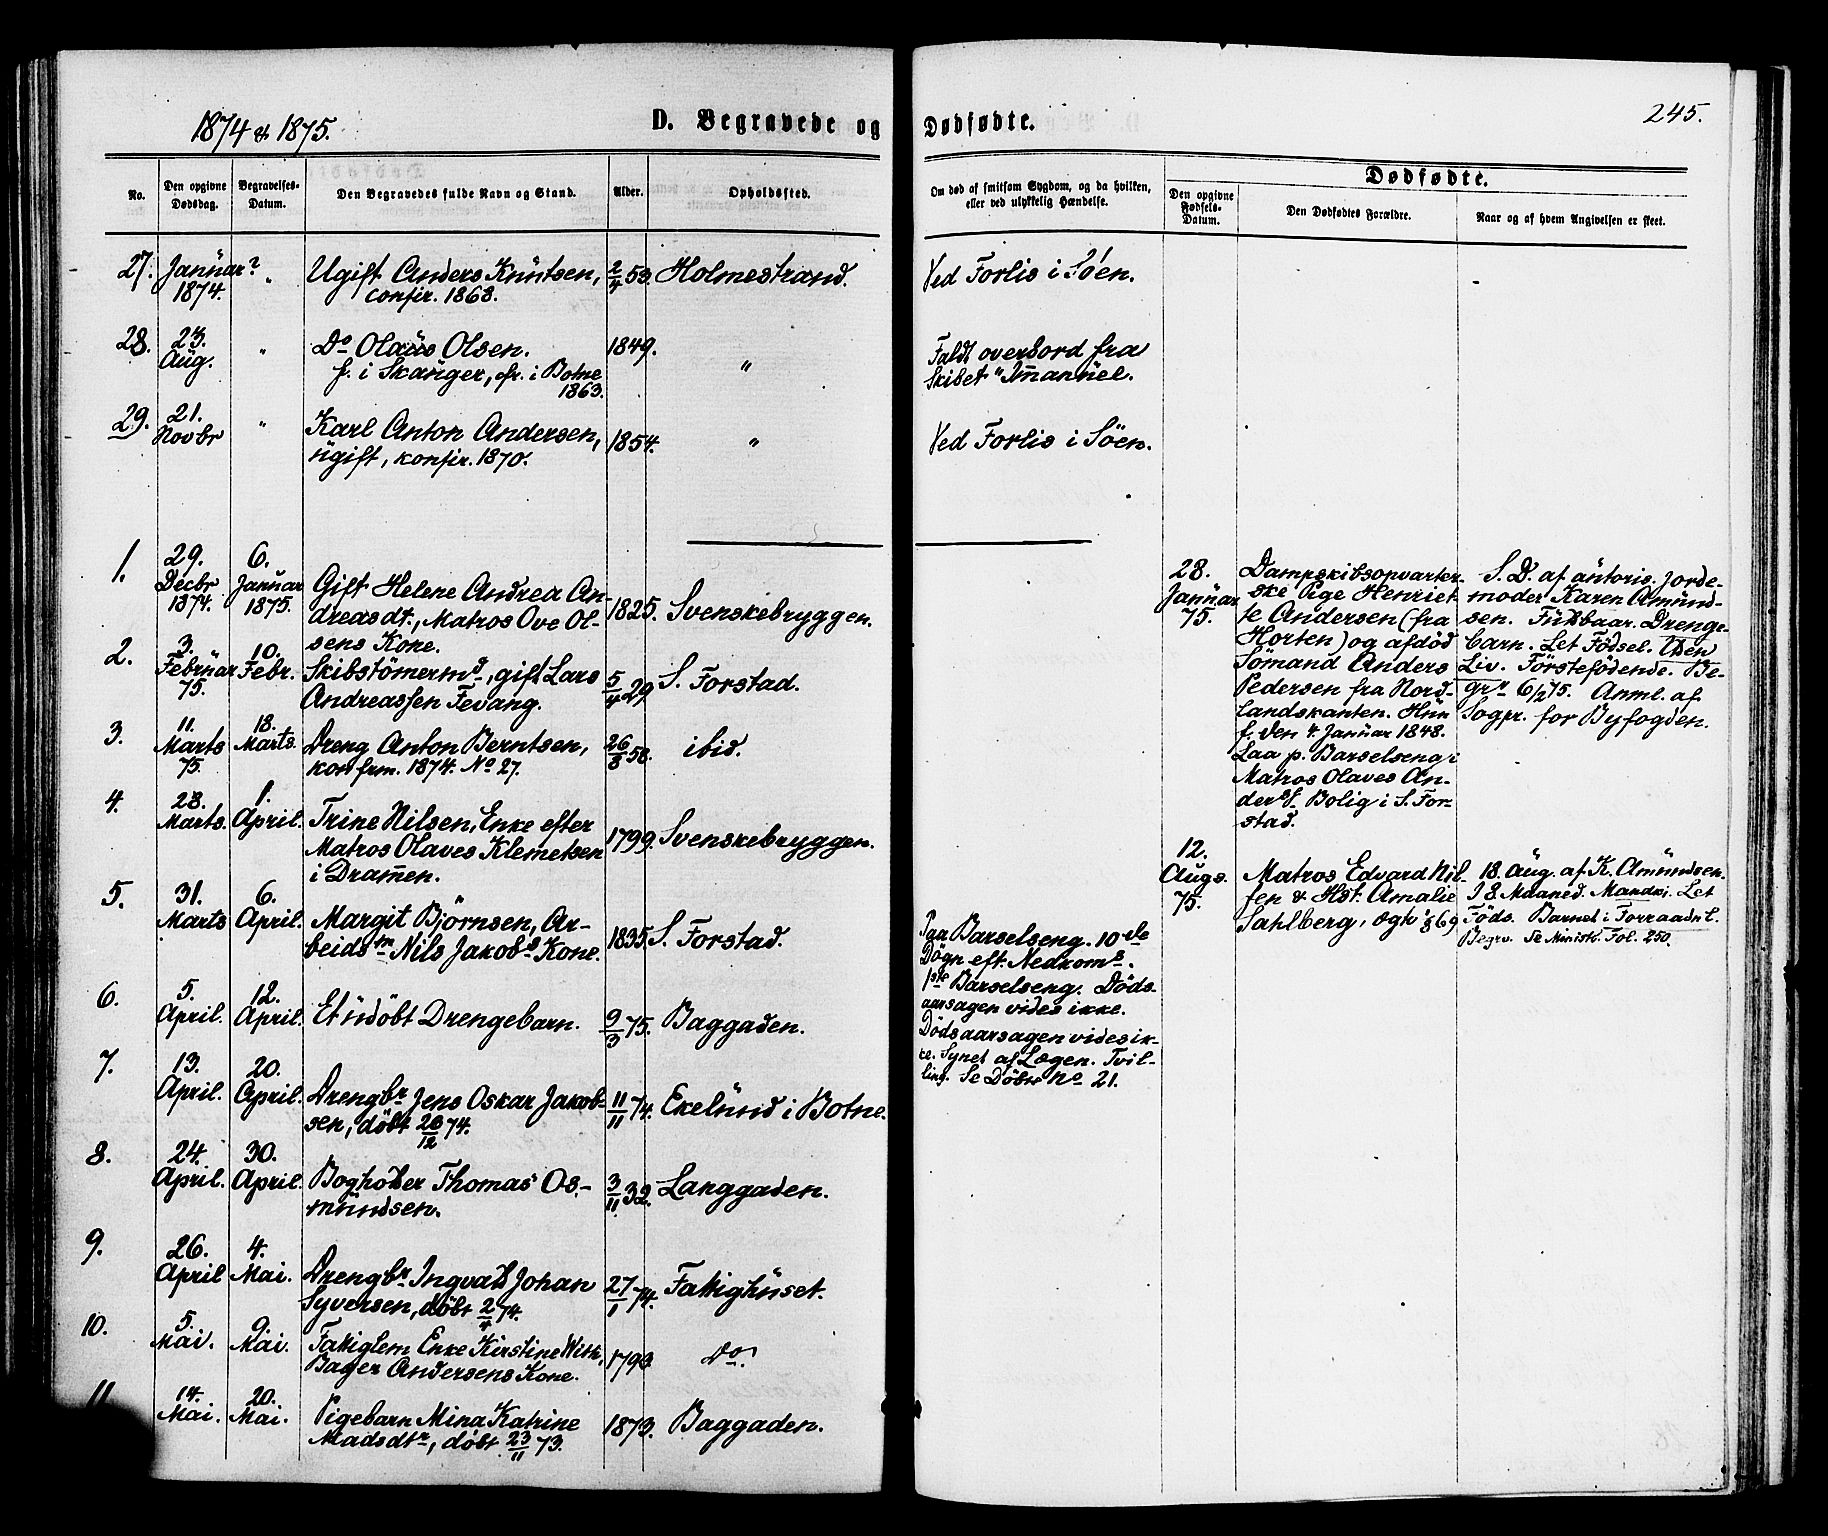 1874 & 1875.
D. Begravede og
Dødfødte.
245.
No.
Den opgivne
Dødsdag.
Begravelses-
Datum.
Den Begravedes fulde Navn og Stand.
Alder.
Opholdssted.
Om død af smitsom Sygdom, og da hvilken,
eller ved ulykkelig Hændelse.
Dødfødte.
Den opgivne
Fødsels-
Datum.
Den Dødfødtes Forældre.
Naar og af hvem Angivelsen er skeet.
27. Januar? " Ugift Anders Knutsen, 2/4 53. Holmestrand. Ved Forlis i Söen.
1874. confir. 1868.
28. 23. " Do Olaüs Olsen. 1849. " Faldt overbord fra
Aug. f. i Skanger, cfr. i Botne Skibet "Imanuel.
1863.
29. 21. " Karl Anton Andersen, 1854. " Ved Forlis i Söen.
Novbr ugift, konfir. 1870.
1. 29. 6.
Decbr Januar Gift Helene Andrea An-
1874. 1875. dreasdt., Matros Ove Ol- 1825. Svenskebryggen.
sens Kone.
2. 3. 10.
Februar Febr. Skibstömermd, gift Lars 5/4 29. S. Forstad.
75. Andreassen Fevang.
3. 11. 18.
Marts Marts. Dreng Anton Berntsen, 26/8 58. ibid.
75. konfrm. 1874. No 27.
4. 28. 1.
Marts. April. Trine Nilsen, Enke efter
Matros Olaves Klemetsen 1799. Svenskebryggen.
i Dramen.
5. 31. 6.
Marts April. Margit Björnsen, Ar-
beidsm Nils Jakobs Kone. 1835. S. Forstad.
Paa Barselseng. 10de
Dögn eft. Nedkoms.
1ste Barselseng. Döds-
aarsagen vides ikke.
6. 5. 12.
April. April. Et udöbt Drengebarn. 9/3 75. Baggaden.
Dödsaarsagen vides ik-
ke. Synet af Lægen. Tvil-
ling. Se Döbte No 21.
7. 13. 20.
April. April. Drengbr Jens Oskar Jakob- 11/11 74. Ekelund i Botne.
sen, döbt 26/12 74.
8. 24. 30.
April. April. Bogholder Thomas Os- 3/11 32. Langgaden.
mundsen.
9. 26. 4.
April Mai. Drengbr Ingvald Johan 27/1 74. Fattighuset.
Syversen, döbt 2/4 74.
10. 5. 9.
Mai. Mai. Fattiglem Enke Kirstine With, 1793. Do.
Bager Andersens Kone.
11. 14. 20.
Mai. Mai. Pigebarn Mina Katrine 1873. Baggaden.
Madsdtr, döbt 23/11 73.
28.
Januar
75.
Dampskibsopvarter-
ske Pige Henriet-
te Andersen (fra
Horten) og afdöd
Sömand Anders
Pedersen fra Nord-
landskanten. Hun
f. den 4. Januar 1848.
Laa p. Barselseng i
Matros Olaves An-
ders. Bolig i S. For-
stad.
S. D. af autoris. Jorde-
moder Karen Amund-
sen. Fuldbaar. Drenge-
barn. Let Födsel. Uden
Liv. Förstefödende. Be-
gr. 6/2 75. Anml. af
Sogpr. for Byfogden.
12.
Augs.
75.
Matros Edvard Nil-
sen & Hst. Amalie
Sahlberg, ægtv. 69
18. Aug. af K. Amundsen.
I 8. Maaned. Mandkj. Let
Föds. Barnet i Forraadn.
Begrv. Se Minist. Fol. 250.